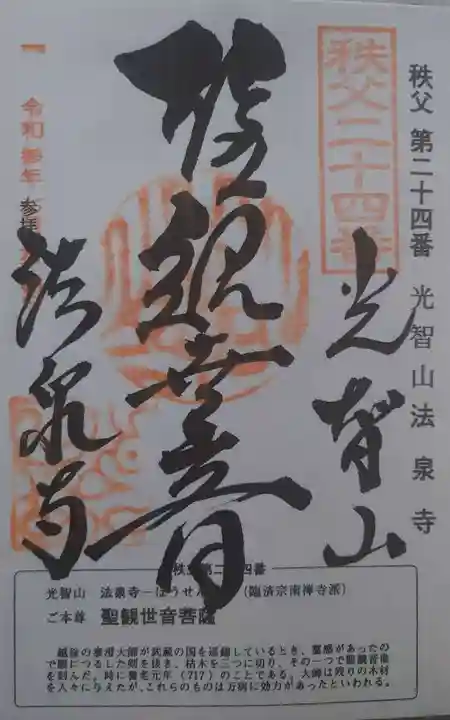 秩父 第二十四番 光智山法泉寺
秩父二十四番
光智山
聖観世音
法泉寺
令和 年 参拝
光智山 法泉寺 (臨済宗南禅寺派)
ご本尊 聖観世音菩薩
越後の泰澄大師が武蔵の国を巡錫しているとき、霊感があったの
で腰につるした剣を抜き、枯木を三つに切り、その一つで聖観音像
を刻んだ。時に養老元年(717)のことである。大師は残りの木材
を人々に与えたが、これらのものは万病に効力があったといわれる。